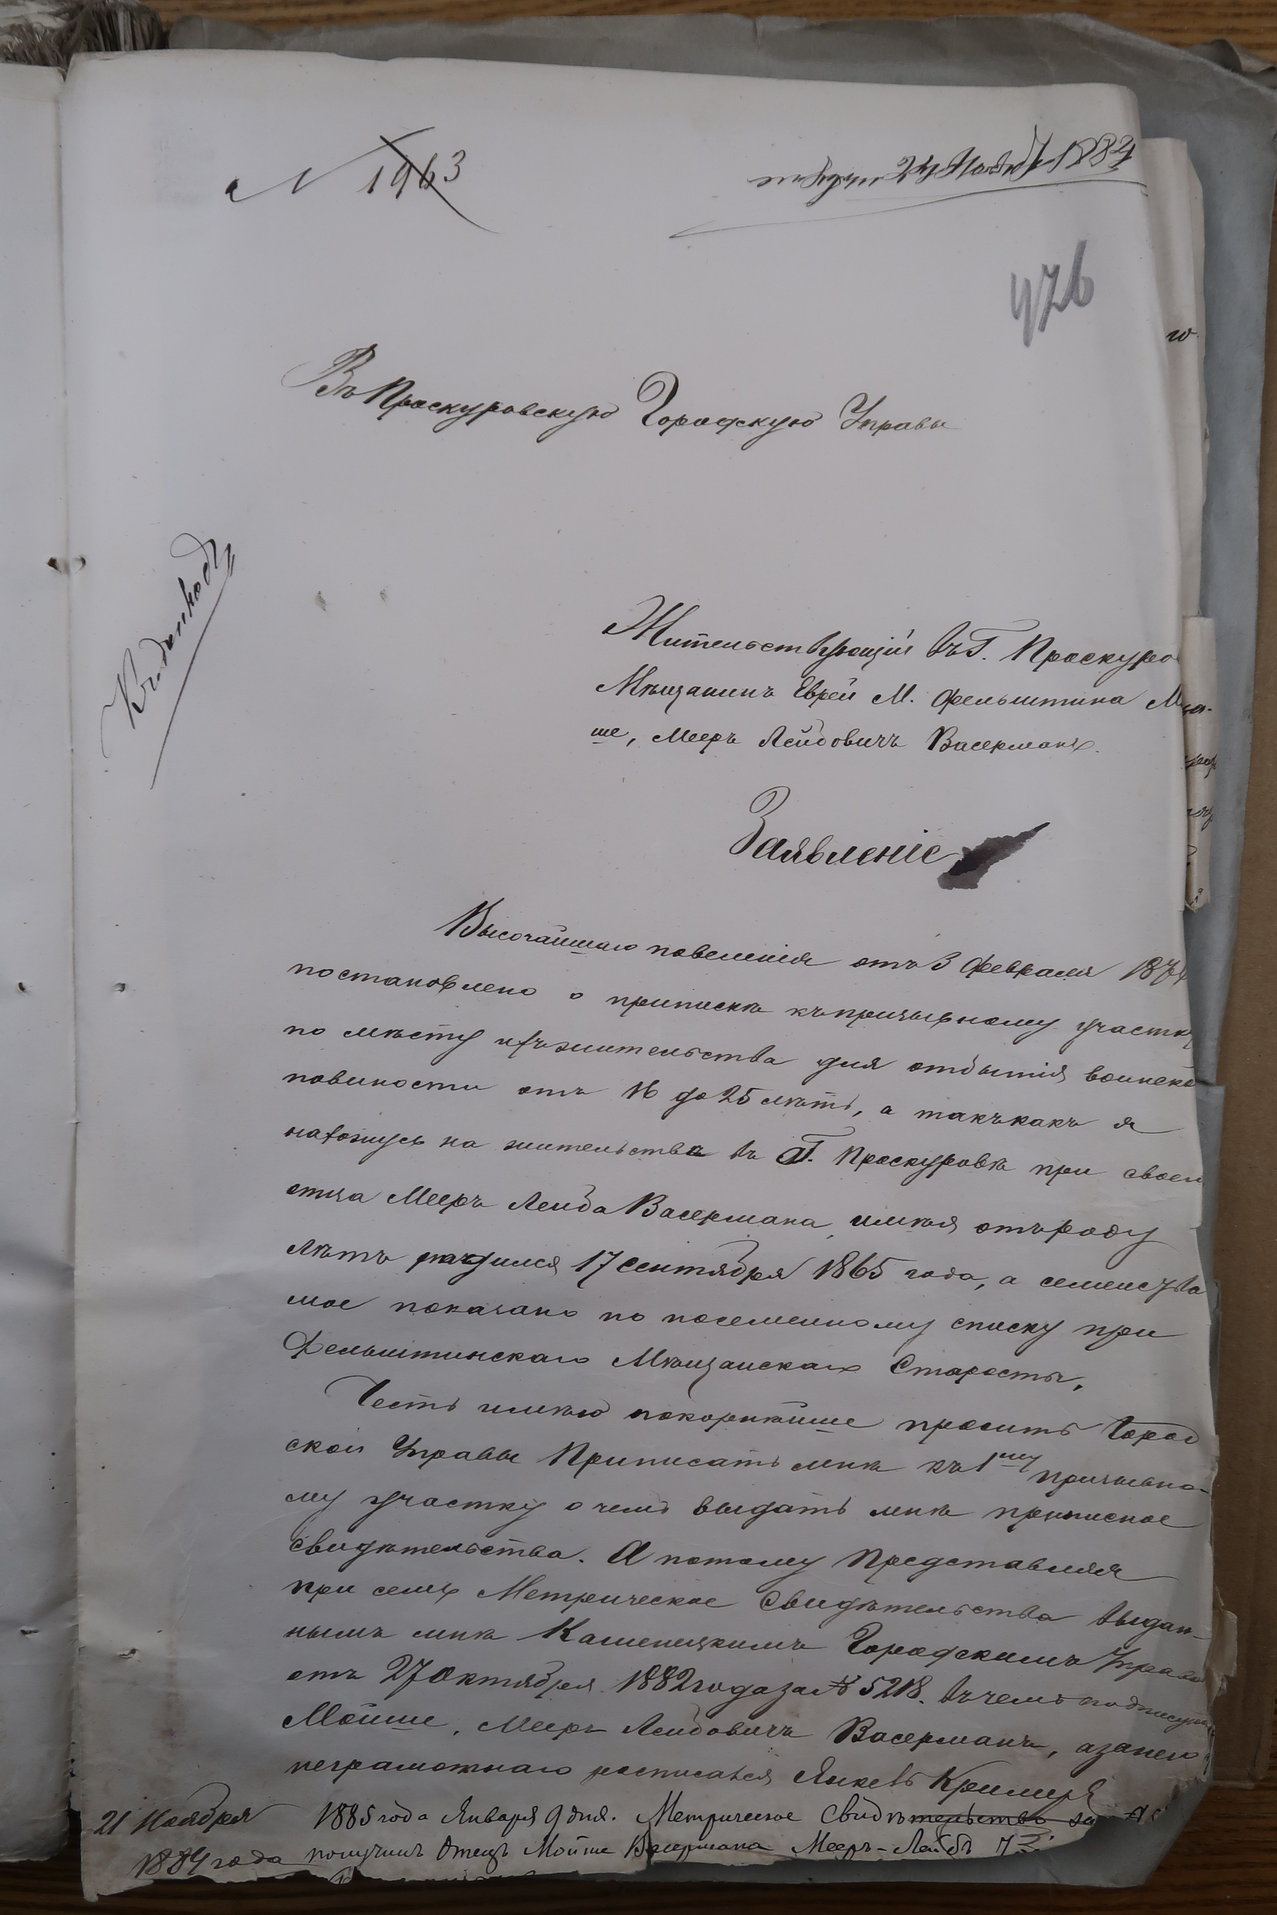 N 1963
24 Ноября 1884
476
Въ Проскуровскую Городскую Управы
Жительствующій въ Г. Проскуро
Мѣщанинъ Еврей М. Фельштина Мой-
ше, Мееръ Лейбовичъ Васерманъ.
Заявленіе
Высочайшаго повеленія отъ 3 Февраля 187
постановлено о припискѣ къ призывному участку
по мѣсту ихъ жительства для отбытія воинско
повиности отъ 16 до 25 лѣтъ, а такъ какъ я
нахожусь на жительствѣ въ Г. Проскуровѣ при своем
отца Мееръ Лейба Васермана, имѣя отъ роду
лѣтъ родился 17 Сентября 1865 года, а семейства
мое показано по посемейному списку при
Фельштинскаго Мѣщанскаго Старосты,
Честь имѣю покорнѣйше просить Город
ской Управы Приписать мнѣ къ 1му призывно-
му участку о чемъ выдать мнѣ приписное
свидѣтельства. А потому Представляя
при семъ Метрическое Свидѣтельства выдан-
нымъ мнѣ Каменецкимъ Городскимъ Управ
отъ 27 Октября 1882 года за № 5218. въ чемъ подписуюсь
Мойше, Мееръ Лейбовичъ Васерманъ, а за него
неграмотнаго росписался Янкель Кремеръ
21 Ноября
1884 года
1885 года Января 9 дня. Метрическое Свидѣтельство за №
получилъ Отецъ Мойше Васермана Мееръ-Лейбъ